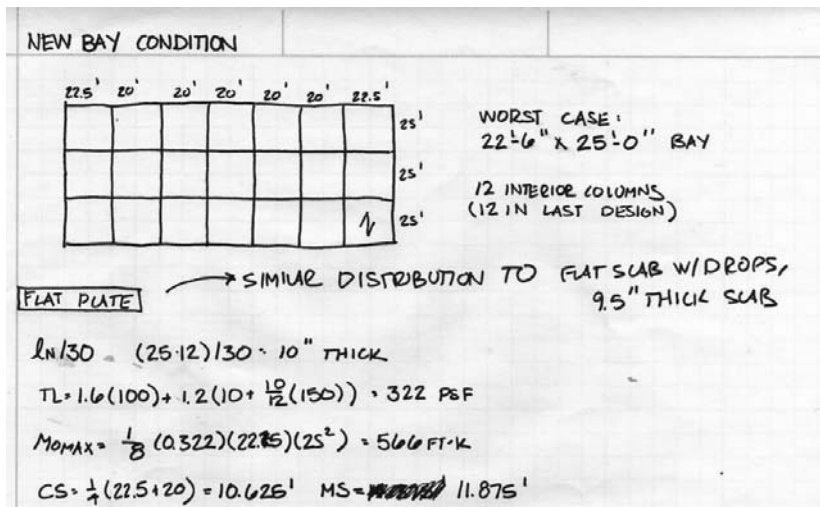 NEW BAY CONDITION
22.5' 20' 20' 20' 20' 20' 22.5'
25'
25'
25'
WORST CASE:
22'-6" x 25'-0" BAY
12 INTERIOR COLUMNS
(12 IN LAST DESIGN)
FLAT PLATE → SIMILAR DISTRIBUTION TO FLAT SLAB W/DROPS,
9.5" THICK SLAB
ln/30 = (25·12)/30 = 10" THICK
TL = 1.6(100) + 1.2(10 + 10/12(150)) = 322 PSF
MOMAX = 1/8 (0.322)(22.5)(25²) = 566 FT·K
CS = 1/4(22.5+20) = 10.625' MS = 11.875'